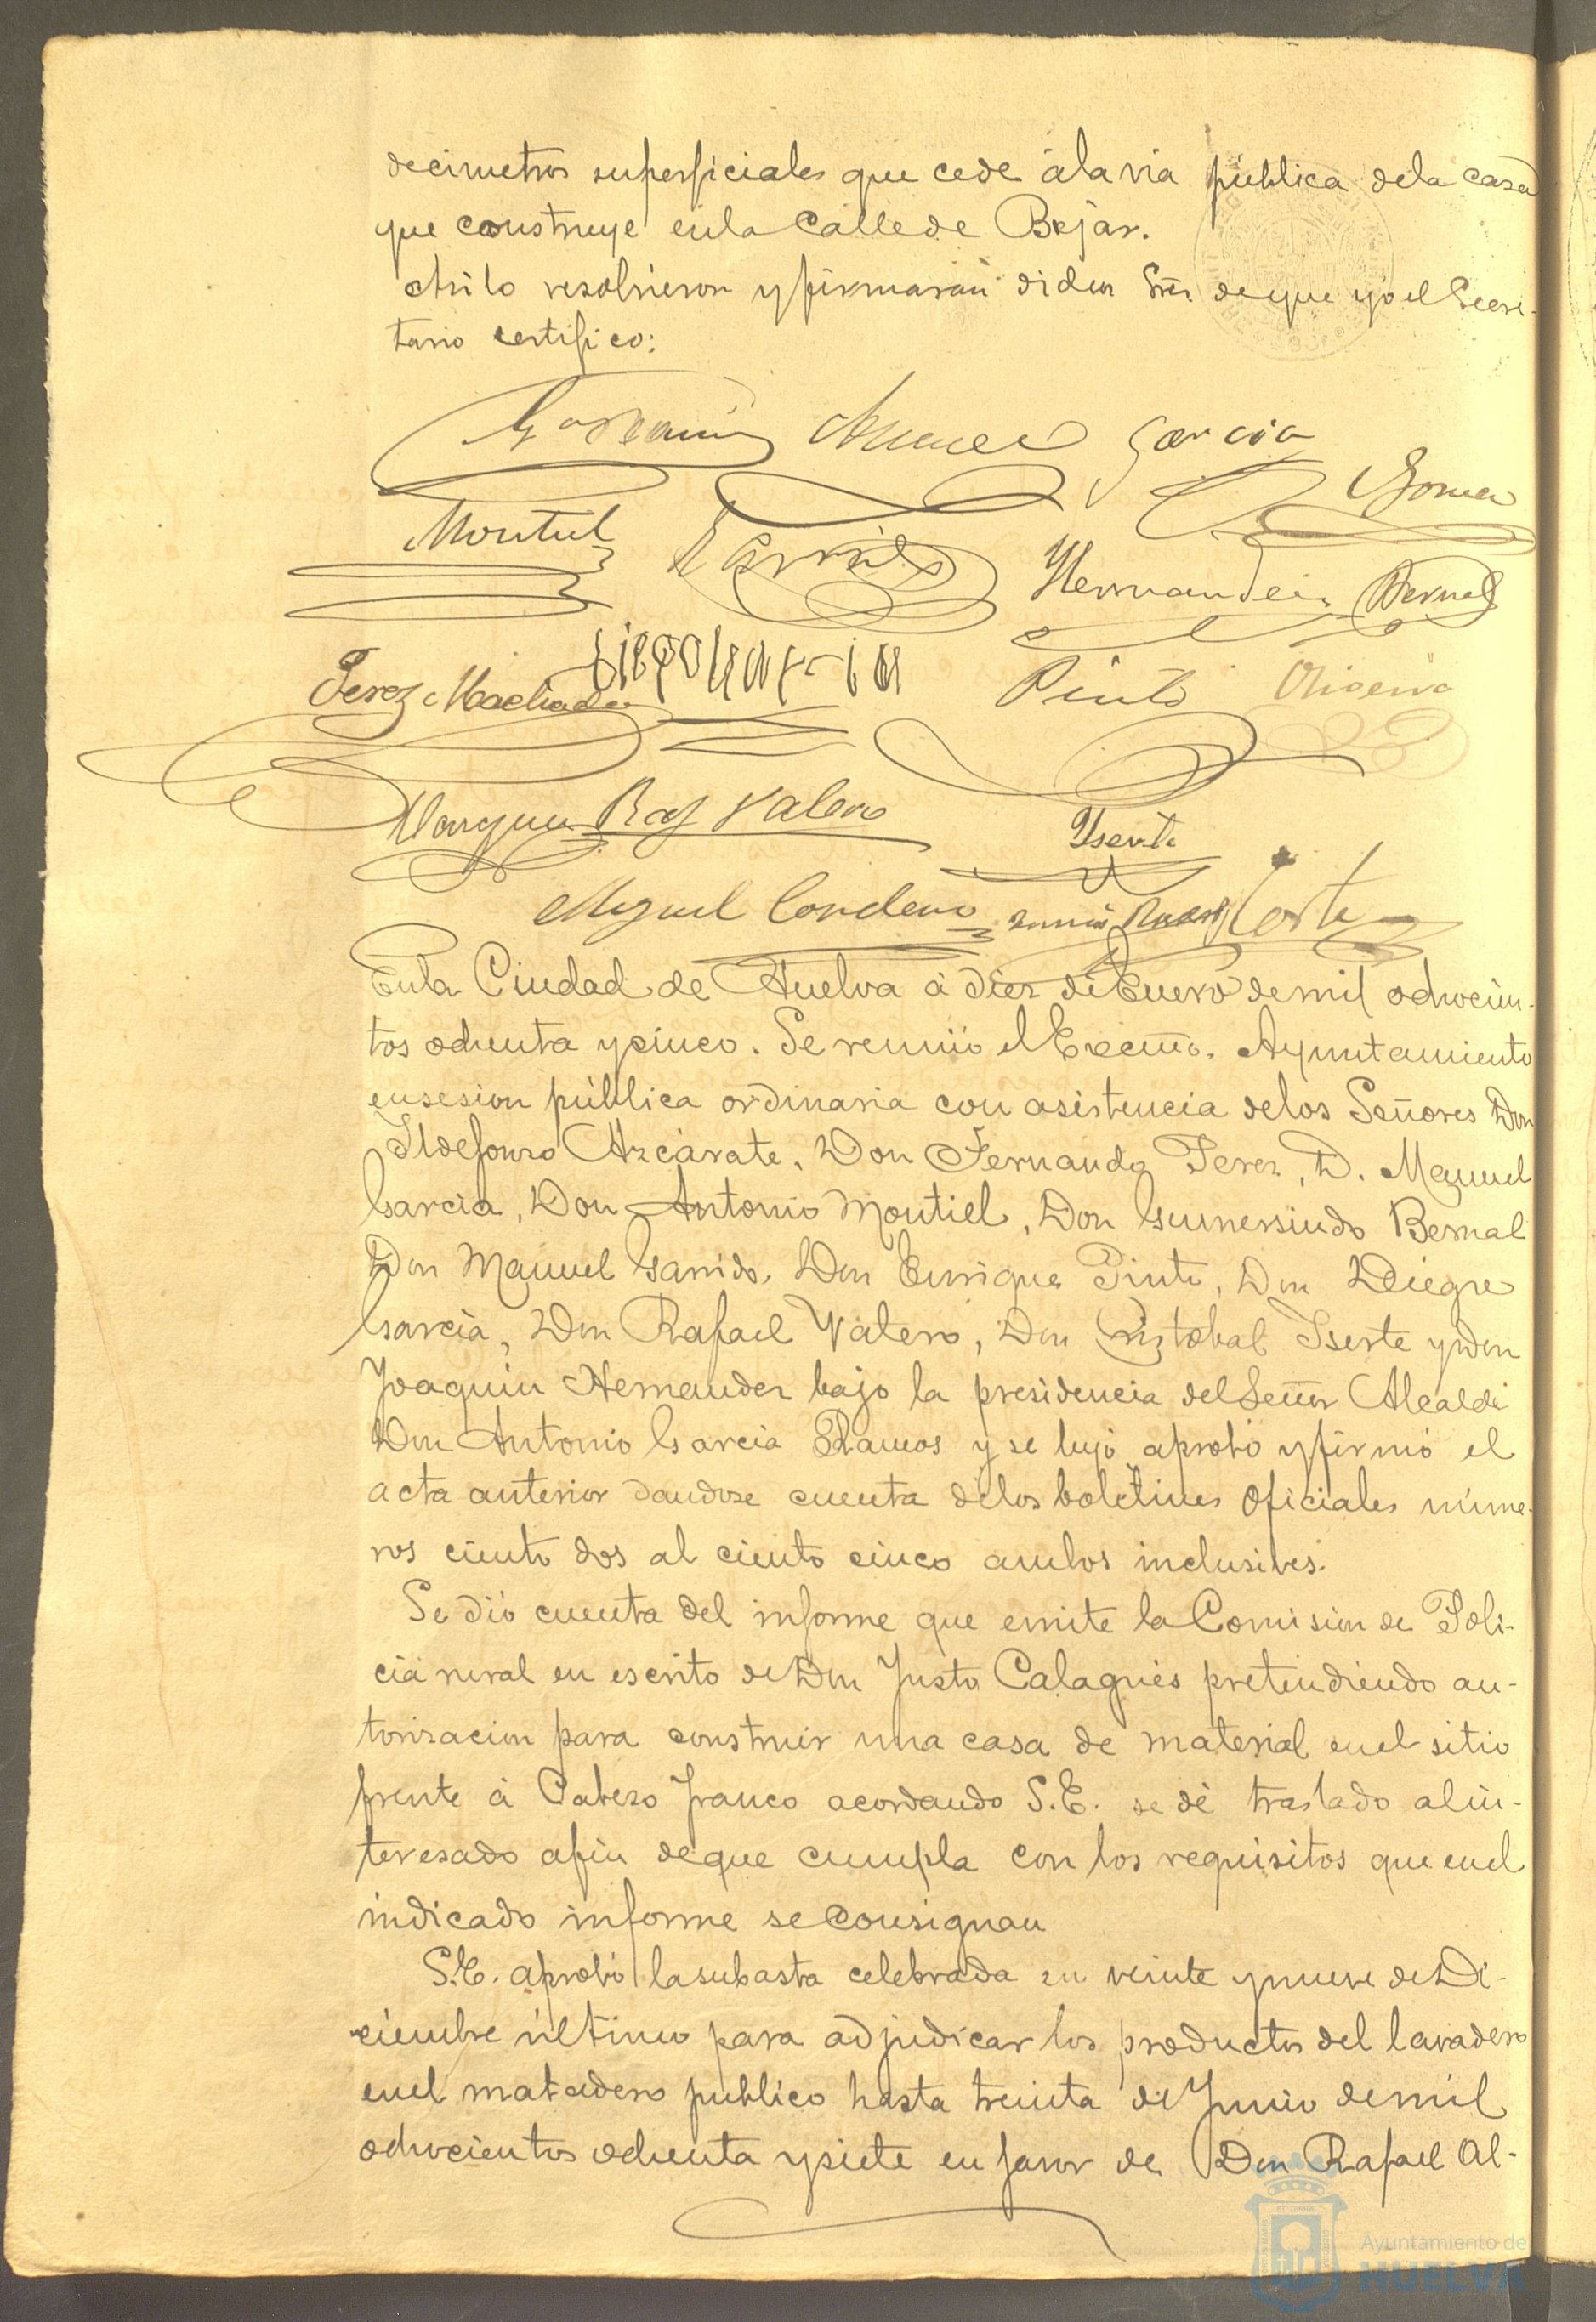 decimetros superficiales que cede á la via pública de la casa
que construye en la Calle de Bejar.
Asi lo resolvieron y firmaran dichos Sres. de que yo el Secre-
tario certifico:
Garcia
Gomez
Montiel Garrido Hernandez Bernal
Perez Machado Pinto
Marquez Raf Valero Yserte
Miguel Cordero Corte
En la Ciudad de Huelva á diez de Enero de mil ochocien-
tos ochenta y cinco. Se reunió el Excmo. Ayuntamiento
en sesion pública ordinaria con asistencia de los Señores Don
Ildefonso Azcárate, Don Fernando Perez, D. Manuel
Garcia, Don Antonio Montiel, Don Gumersindo Bernal
Don Manuel Garrido, Don Enrique Pinto, Don Diego
Garcia, Don Rafael Valero, Don Cristobal Yserte y Don
Joaquin Hernandez bajo la presidencia del Señor Alcalde
Don Antonio Garcia Ramos y se leyó aprobó y firmó el
acta anterior dandose cuenta de los boletines Oficiales núme-
ros ciento dos al ciento cinco ambos inclusives.
Se dió cuenta del informe que emite la Comision de Poli-
cia rural en escrito de Don Justo Calagués pretendiendo au-
torizacion para construir una casa de material en el sitio
frente á Cabezo franco acordando S.E. se dé traslado al in-
teresado afin de que cumpla con los requisitos que en el
indicado informe se consignan
S.E. aprobó la subasta celebrada en veinte y nueve de Di-
ciembre último para adjudicar los productos del lavadero
en el matadero publico hasta treinta de Junio de mil
ochocientos ochenta y siete en favor de Don Rafael Al-
Ayuntamiento de
HUELVA